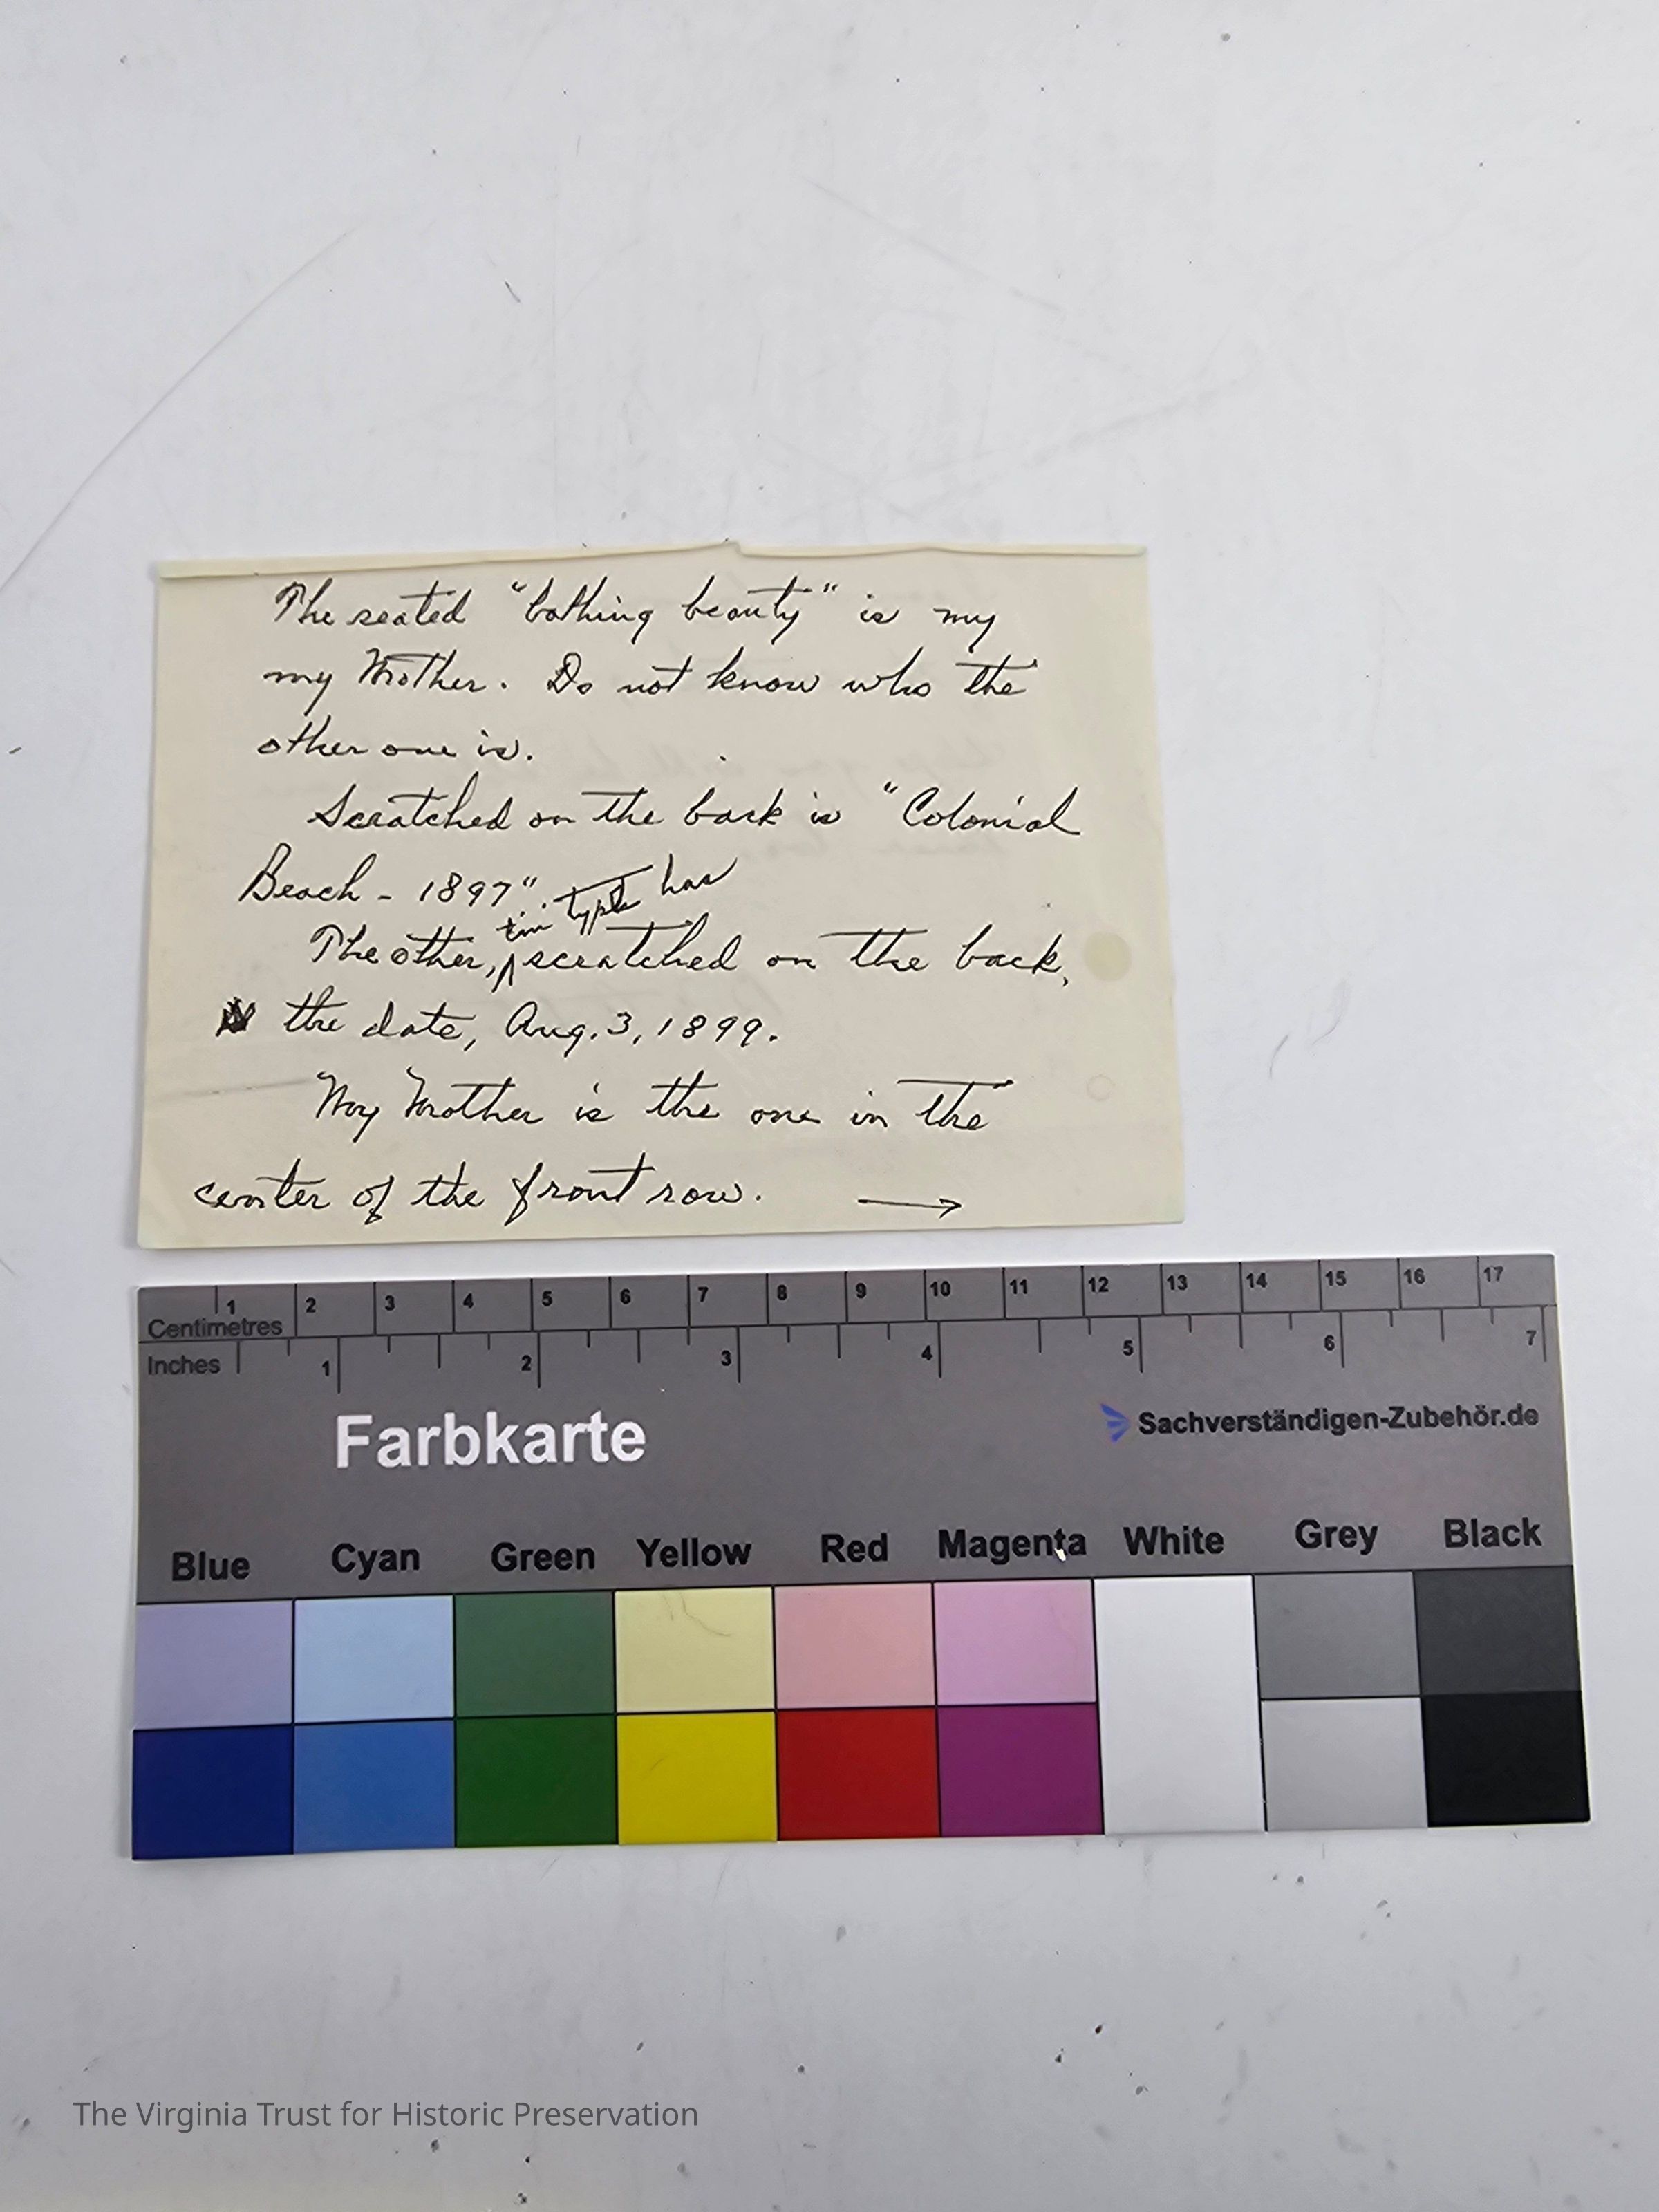 The seated "bathing beauty" is my
my Mother. Do not know who the
other one is.
Scratched on the back is "Colonial
Beach - 1897".
tin type has
The other, scratched on the back,
the date, Aug. 3, 1899.
My Mother is the one in the
center of the front row. →
1 2 3 4 5 6 7 8 9 10 11 12 13 14 15 16 17
Centimetres
Inches 1 2 3 4 5 6 7
Farbkarte
Sachverständigen-Zubehör.de
Blue Cyan Green Yellow Red Magenta White Grey Black
The Virginia Trust for Historic Preservation